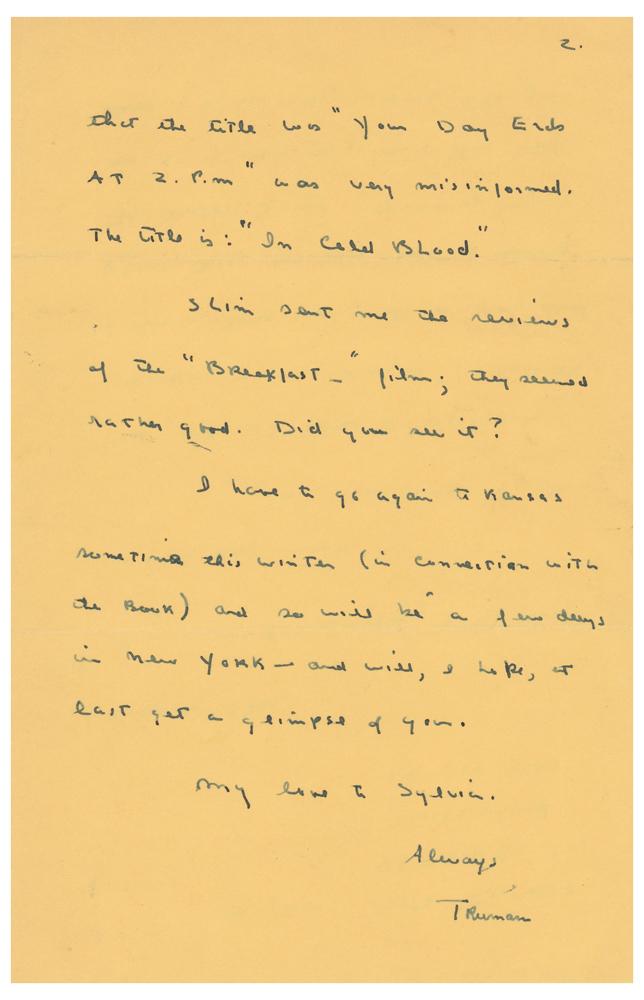 2.
that the title was "Your Day Ends
AT 2. P.m" was very misinformed.
The title is: "In Cold Blood."
Slim sent me the reviews
of the "Breakfast —" film; they seemed
rather good. Did you see it?
I have to go again to Kansas
sometime this winter (in connection with
the Book) and so will be a few days
in New York — and will, I hope, at
last get a glimpse of you.
My love to Sylvia.
Always
Truman